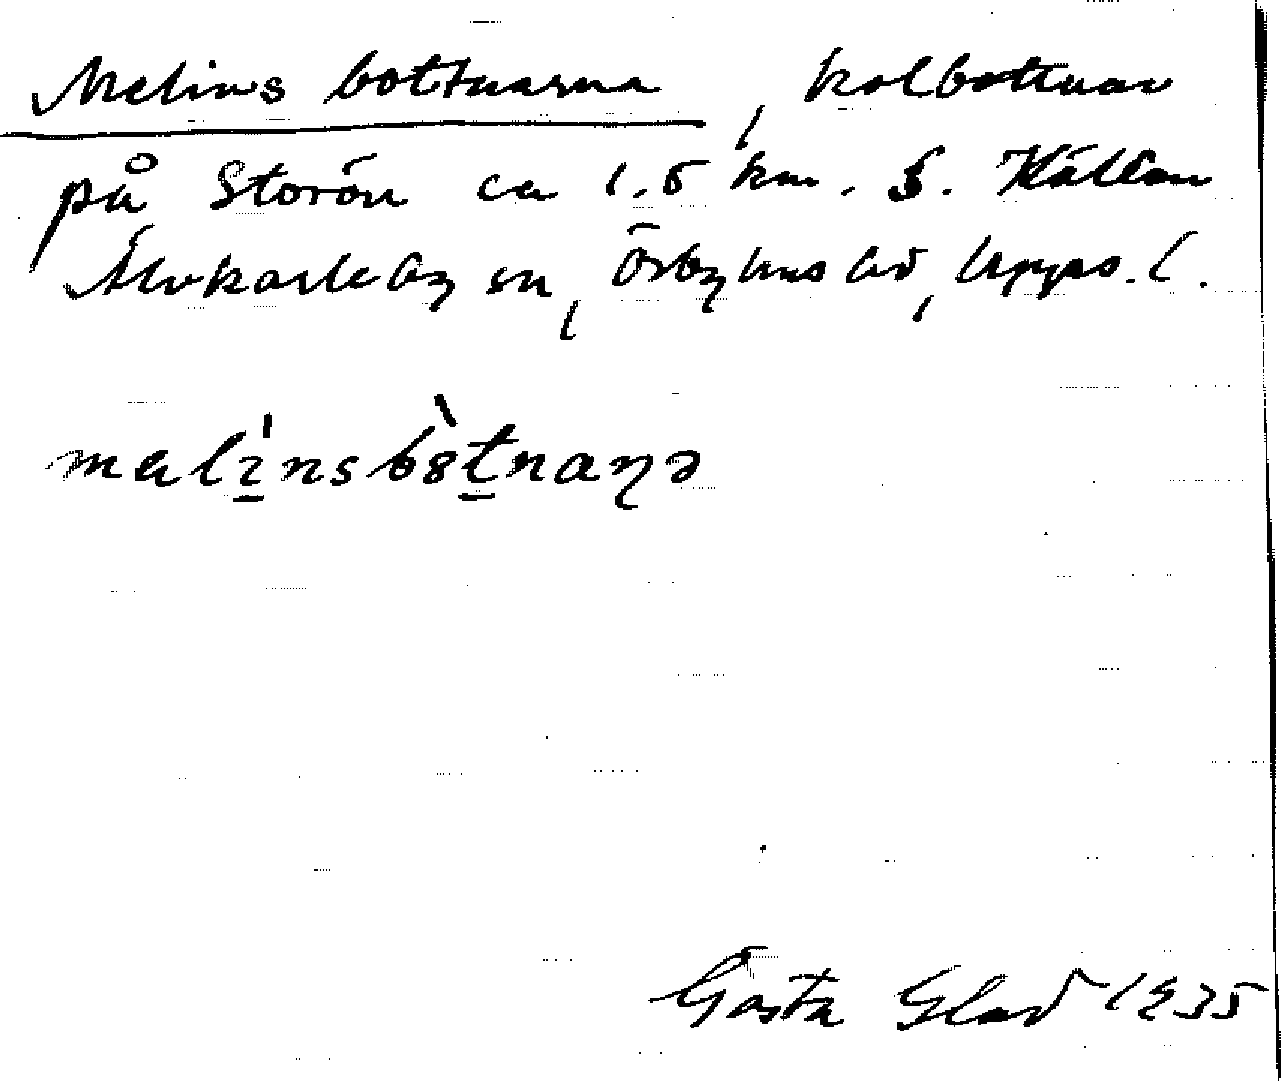 Melins bottnarna, kolbottnar
på Storön ca 1.5 km. S. Källan
Älvkarleby sn, Örbyhus hd, Upps. l.
melinsbotnaṇə
Gösta Glad 1935